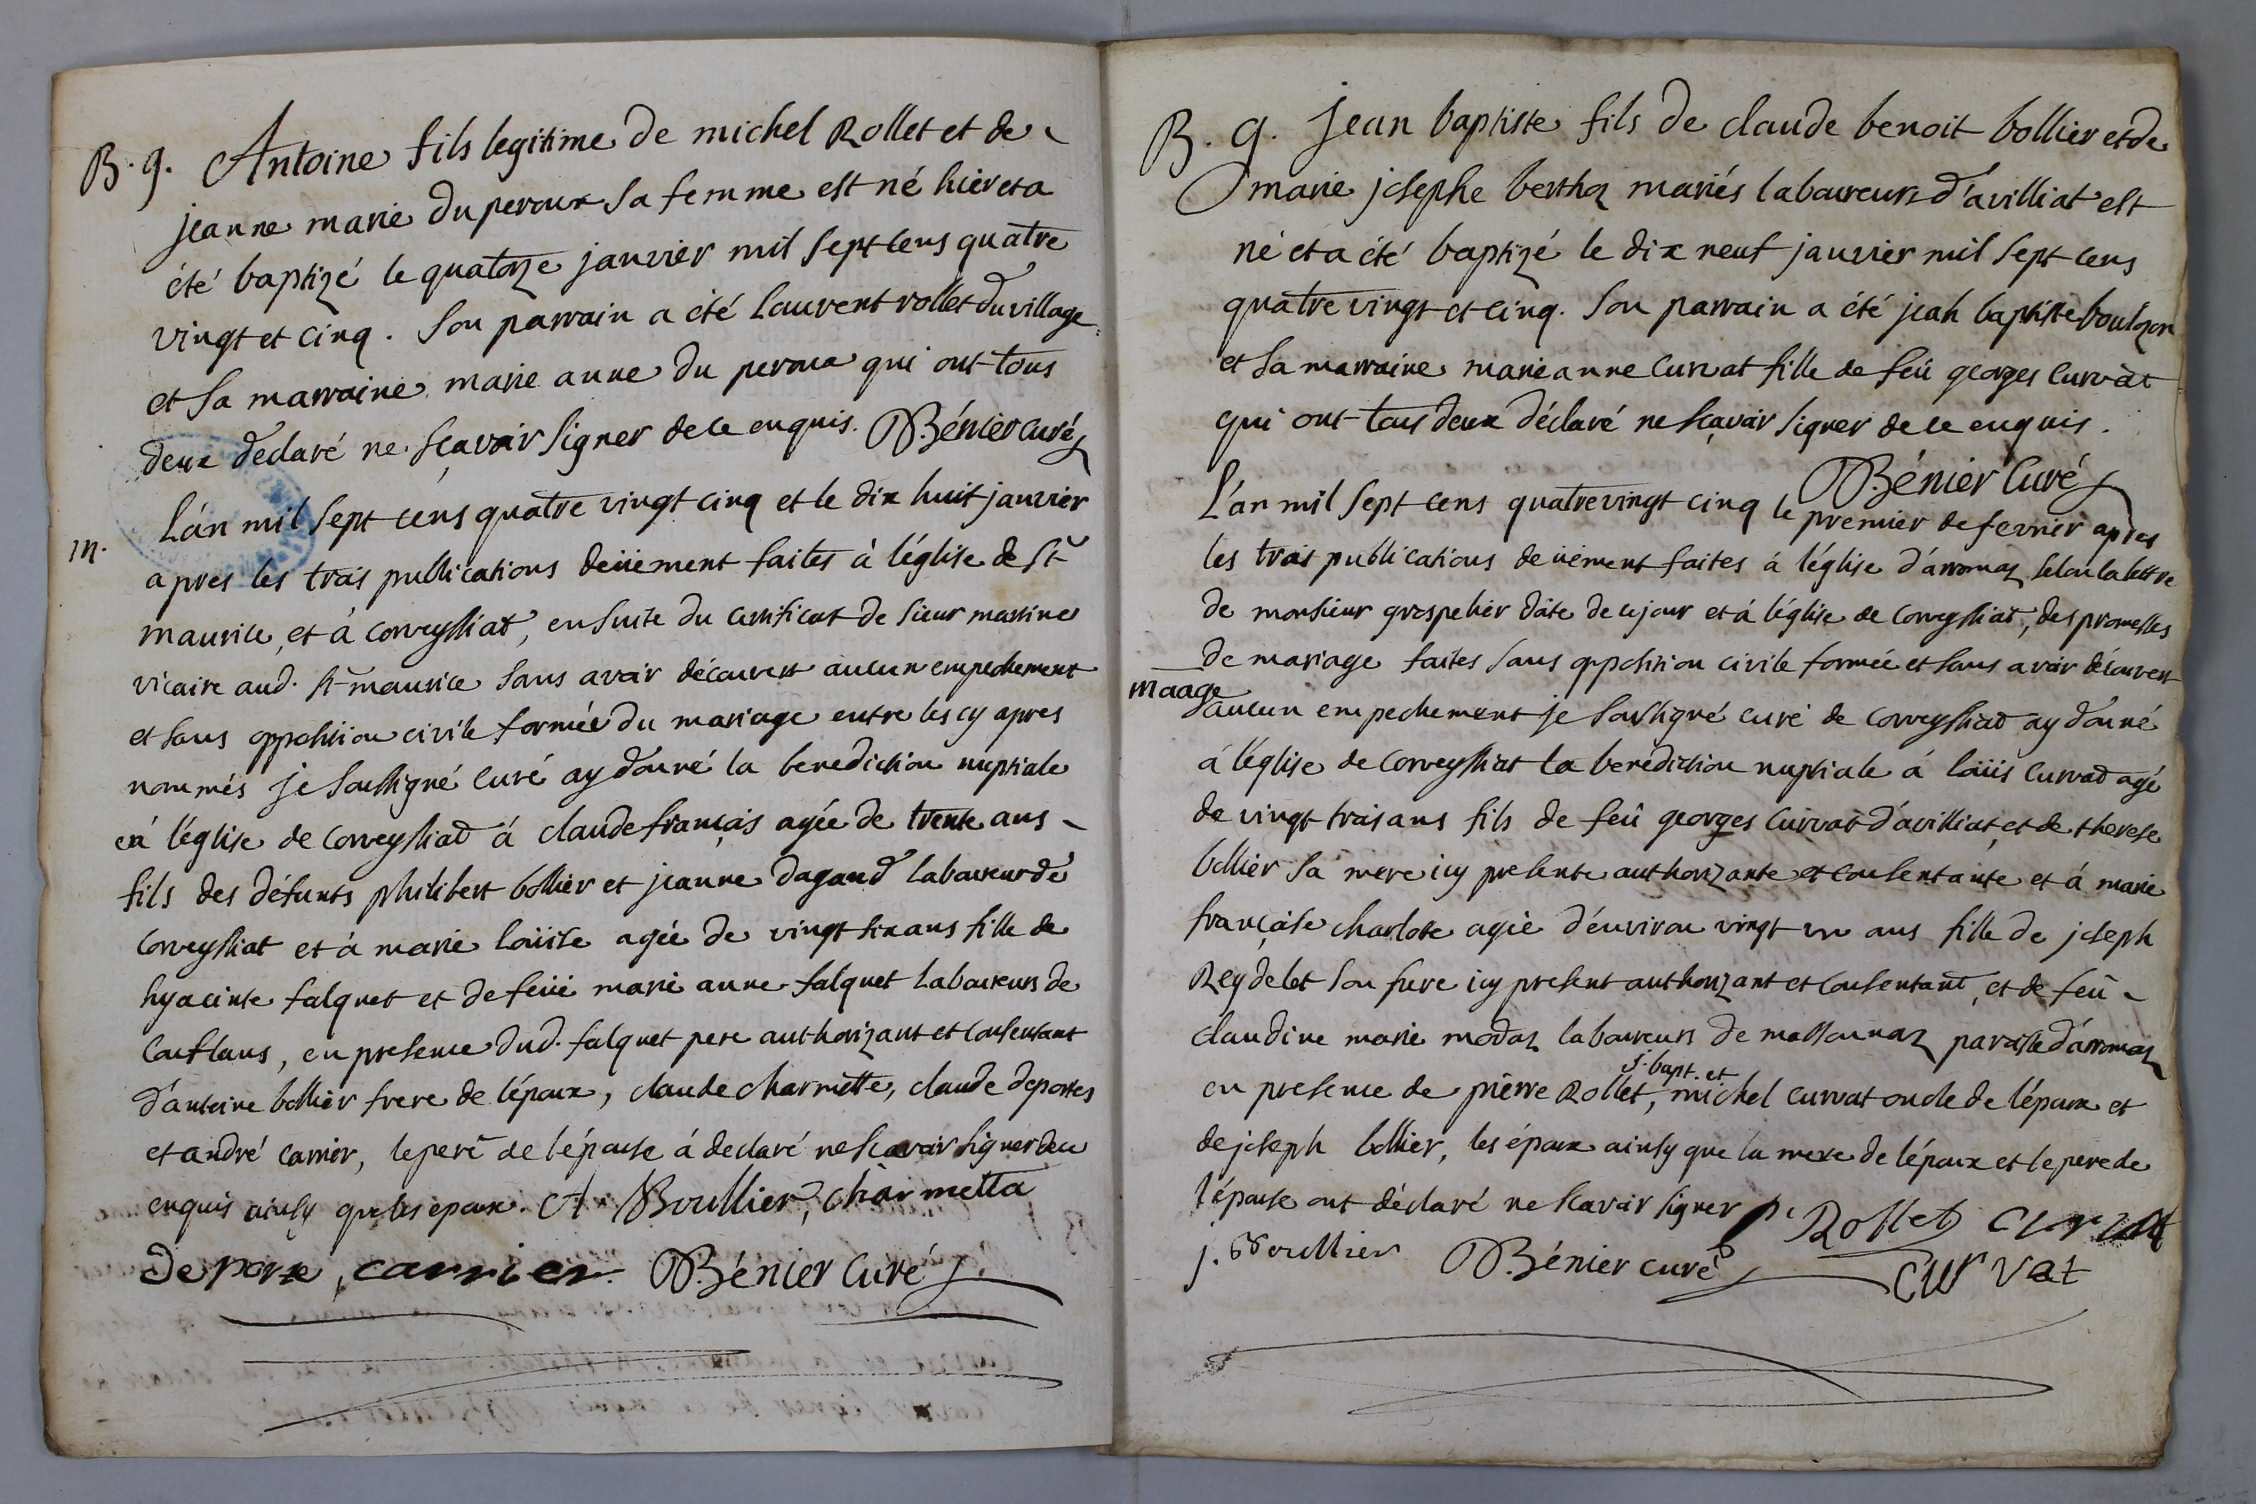 B. g. Antoine fils legitime de michel Rollet et de
jeanne marie du peroux sa femme est né hier et a
été baptizé le quatorze janvier mil sept cens quatre
vingt et cinq. Son parrain a été laurent rollet du village
et sa marraine marie anne du peroux qui ont tous
deux declaré ne sçavoir signer de ce enquis. Bénier curé
m. L'an mil sept cens quatre vingt cinq et le dix huit janvier
apres les trois publications deüement faites à l'église de St
maurice, et à Corveyssiat, ensuite du certificat de sieur
vicaire aud. St maurice sans avoir découvert aucun empechement
et sans opposition civile formée du mariage entre les cy apres
nommés je soussigné curé ay donné la benediction nuptiale
en l'église de Corveyssiat à claude françois agée de trente ans
fils des défunts philibert bollier et jeanne dagand laboureur de
Corveyssiat et à marie loüise agée de vingt six ans fille de
hyacinte falquet et de feüe marie anne falquet laboureurs de
Conflans, en presence dud. falquet pere authorizant et consentant
d'antoine bollier frere de l'époux, claude charmette, claude deportes
et andré carrier, le pere de l'épouse à declaré ne scavoir signer de ce
enquis ainsy que les epoux. A Boullier, charmetta
deporte, carrier Bénier Curé
B. g. Jean baptiste fils de claude benoit bollier et de
marie josephe berthoz mariés laboureurs d'avilliat est
né et a été baptizé le dix neuf janvier mil sept cens
quatre vingt et cinq. Son parrain a été jean baptiste boulzon
et sa marraine marie anne Curvat fille de feû georges Curvat
qui ont tous deux déclaré ne sçavoir signer de ce enquis.
Bénier Curé
L'an mil sept cens quatre vingt cinq le premier de fevrier apres
les trois publications deüement faites à l'église d'aromaz selon la lettre
de monsieur grospelier date de ce jour et à l'église de Corveyssiat, des promesses
de mariage faites sans opposition civile formée et sans avoir découvert
maage
d'aucun empechement je soussigné curé de Corveyssiat ay donné
à l'église de Corveyssiat la benédiction nuptiale à loüis Curvat agé
de vingt trois ans fils de feû georges Curvat d'avilliat, et de therese
bollier sa mere icy presente authorizante et consentante et à marie
françoise charlote agée d'environ vingt un ans fille de joseph
Reydelet son pere icy present authorizant et consentant, et de feû
claudine marie modaz laboureurs de massonnaz paroisse d'aromaz
j. bapt. et
en presence de pierre Rollet, michel curvat oncle de l'époux et
de joseph bollier, les époux ainsy que la mere de l'époux et le pere de
l'épouse ont déclaré ne scavoir signer p. Rollet Curvat
j. Boullier Bénier curé Curvat